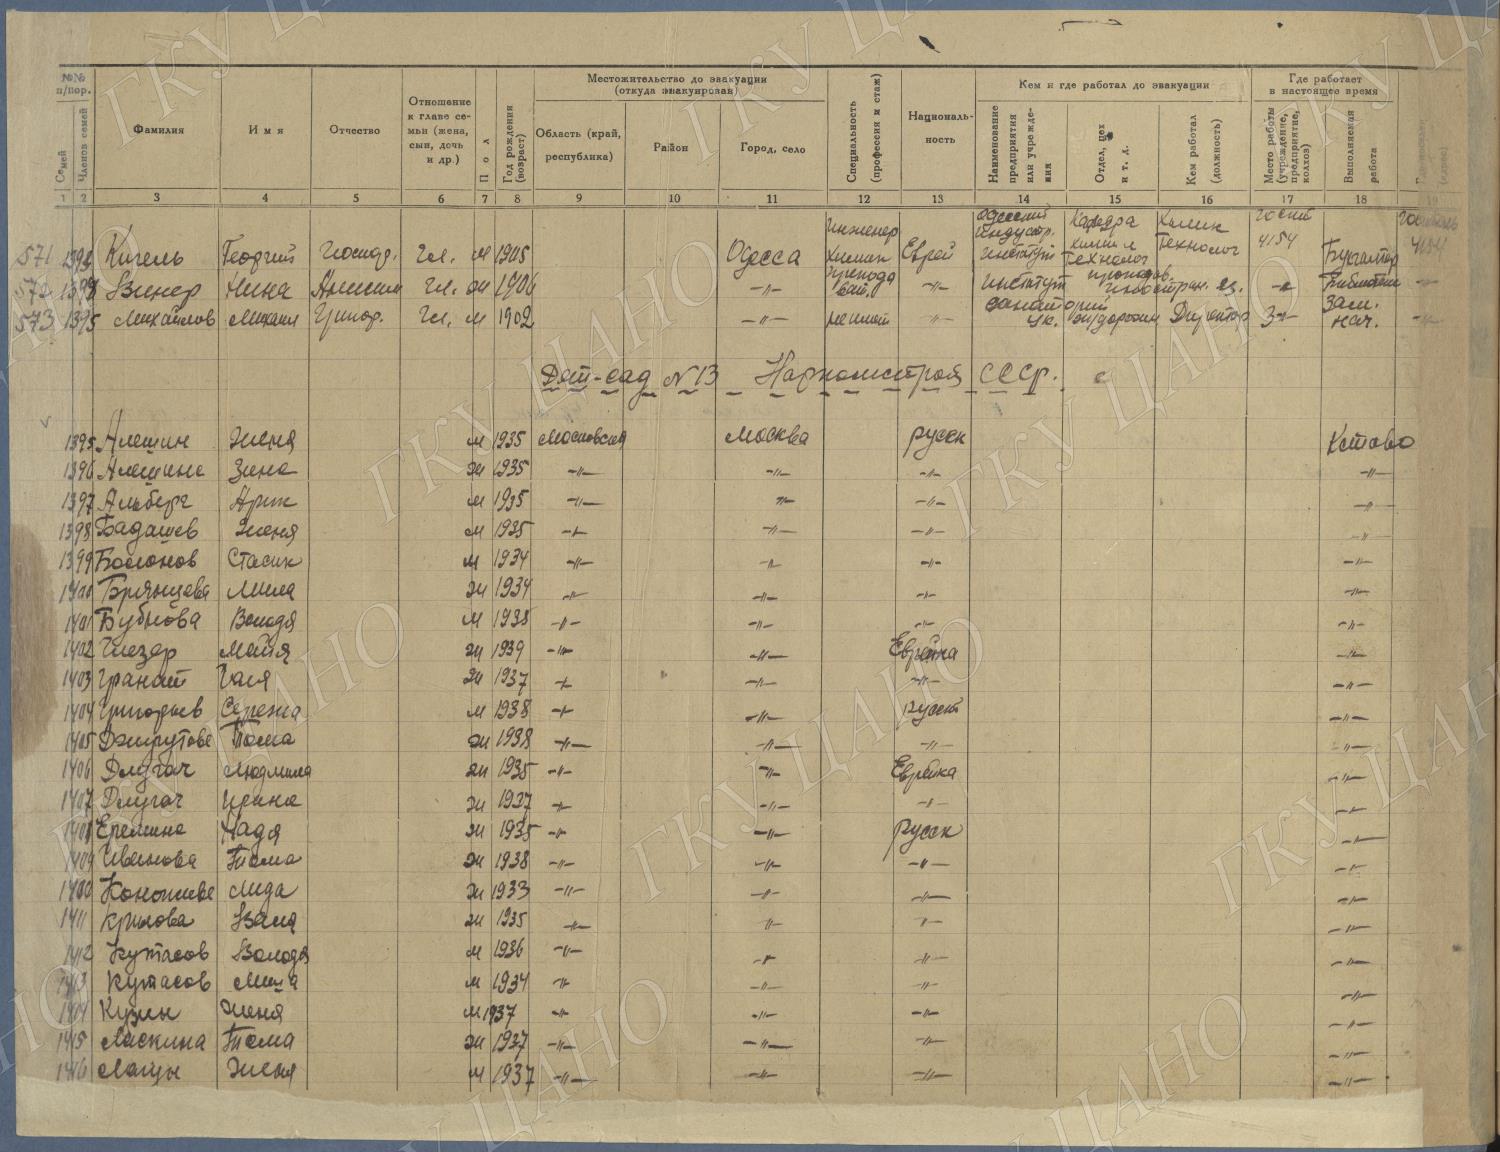 №№ п/пор. Местожительство до эвакуации (откуда эвакуирован) Кем и где работал до эвакуации Где работает в настоящее время
Семей Членов семей Фамилия Имя Отчество Отношение к главе семьи (жена, сын, дочь и др.) Пол Год рождения (возраст) Область (край, республика) Район Город, село Специальность (профессия и стаж) Националь-ность Наименование предприятия или учрежде-ния Отдел, цех и т. д. Кем работал (должность) Место работы (учреждение, предприятие, колхоз) Выполняемая работа
1 2 3 4 5 6 7 8 9 10 11 12 13 14 15 16 17 18 19
571 1393 Кигель Георгий Гл. м 1905 Одесса Инженер Химик Еврей Одесский индустр. институт Кафедра химии и технолог Химик Технолог 4154 Бухгалтер 4154
572 Винер Нина Гл. ж 1906 -"- -"- Институт иностран. яз. -"- -"-
573 1395 Михайлов Михаил Григор. Гл. м 1902 -"- -"- Директор Зам. нач. -"-
Дет-сад №13 Наркомстрой СССР.
1395 Алешин Женя м 1935 Московская Москва русск Кстово
1396 Алешина Зина ж 1935 -"- -"- -"- -"-
1397 Альберг Арик м 1935 -"- -"- -"- -"-
1398 Бадашев Женя м 1935 -"- -"- -"- -"-
1399 Стасик м 1934 -"- -"- -"- -"-
1400 Брянцева Мила ж 1934 -"- -"- -"- -"-
1401 Бубнова Володя м 1938 -"- -"- -"- -"-
1402 Глезер Майя ж 1939 -"- -"- Еврейка -"-
1403 Гранат Галя ж 1937 -"- -"- -"- -"-
1404 Григорьев Сережа м 1938 -"- -"- русск -"-
1405 Тома ж 1938 -"- -"- -"- -"-
1406 Длугач Людмила ж 1935 -"- -"- Еврейка -"-
1407 Длугач Ирина ж 1937 -"- -"- -"- -"-
1408 Еремина Надя ж 1935 -"- -"- русск -"-
1409 Иванова Тома ж 1938 -"- -"- -"- -"-
Лида ж 1933 -"- -"- -"- -"-
1411 Крылова Валя ж 1935 -"- -"- -"- -"-
1412 Кутасов Володя м 1936 -"- -"- -"- -"-
1413 Кутасов Миша м 1934 -"- -"- -"- -"-
1414 Кузин Женя м 1937 -"- -"- -"- -"-
1415 Ласкина Тома ж 1937 -"- -"- -"- -"-
1416 Женя м 1937 -"- -"- -"- -"-
ГКУ ЦАНО